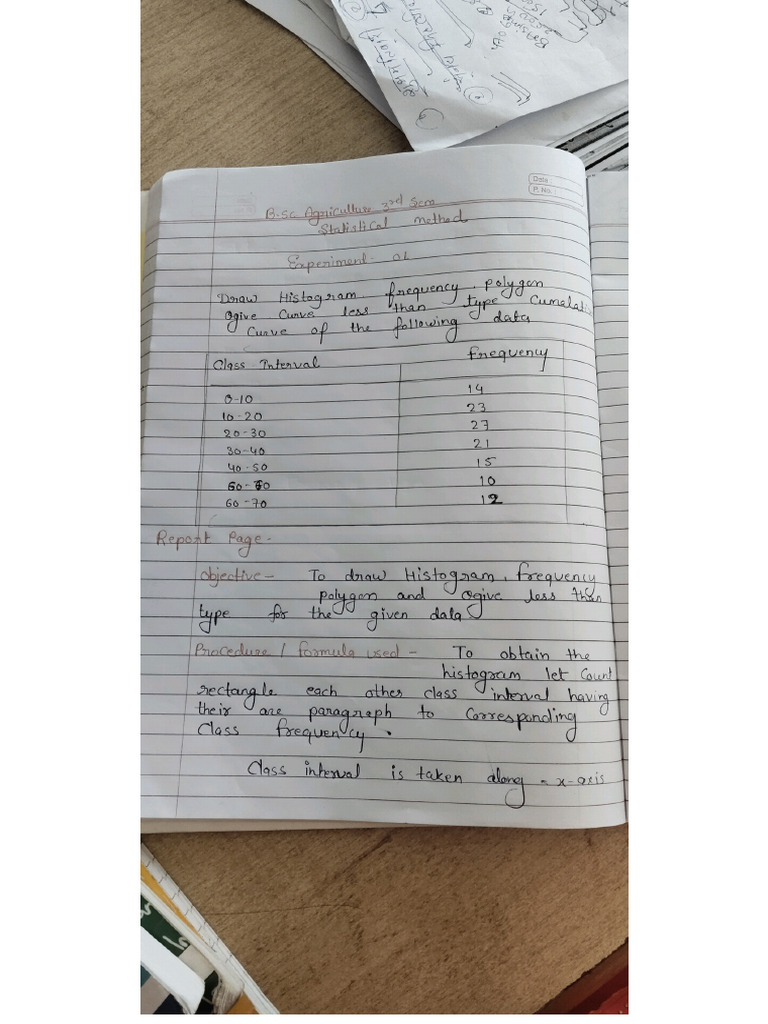 Date
P. No.
B.Sc. Agriculture 3rd Sem
Statistical method
Experiment - 01
Draw Histogram, frequency, polygon
Ogive curve less than type Cumalati
Curve of the following data
Class Interval Frequency
0-10 14
10-20 23
20-30 27
30-40 21
40-50 15
50-60 10
60-70 12
Report Page -
Objective - To draw Histogram, frequency
polygon and ogive less than
type for the given data
Procedure / formula used - To obtain the
histogram let Count
rectangle each other class interval having
their are paragraph to corresponding
Class frequency.
Class interval is taken along - x-axis